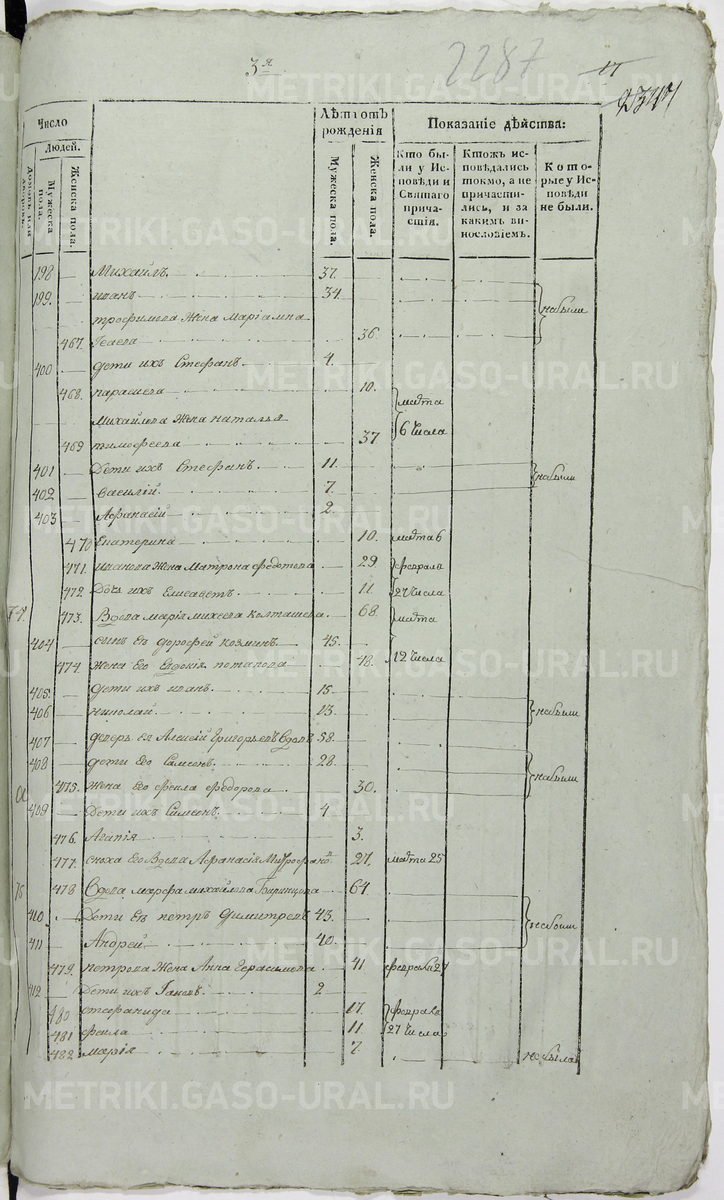 3я
2287
17
2347
Число
Людей.
Домовъ или дворовъ.
Мужеска пола.
Женска пола.
Лѣтъ отъ рожденія
Мужеска пола.
Женска пола.
Показаніе дѣйства:
Кто бы-
ли у Ис-
повѣди и
Святаго
прича-
стія.
Ктожъ ис-
повѣдались
токмо, а не
причасти-
лись, и за
какимъ ви-
нословіемъ.
Кото-
рые у Ис-
повѣди
не были.
198 Михаилъ 37.
199. Иванъ 34. небыли
трофимова Жена Маріамна
467. Исаева 36.
400 дети ихъ Стефанъ 4.
468. параскева 10. марта
Михайлова Жена наталья
469 тимофеева 37 6 числа
401 Дети ихъ Стефанъ 11.
402 василій 7. небыли
403 Афанасій 2.
470 Екатерина 10. марта 6
471. иванова Жена Матрона федотова 29 февраля
472. Дочь ихъ Елисаветъ 11. 27 числа
74. 473. Вдова марія михеева колташева 68. марта
404 сынъ ея дорофей козминъ 45.
474. жена его Евдокія потапова 48. 12 числа
405. дети ихъ иванъ 15.
406 николай 13. небыли
407 деверь ея Алексій Григорьевъ вдовъ 58.
408 дети его Самсонъ 28.
475. жена его фекла федорова 30. небыли
409 Дети ихъ Симеонъ 4
476. Агапія 3.
477. сноха его вдова Афанасія Митрофанов 27, марта 25
75 478 Вдова марфа михайлова 64.
410 Дети ея петръ Димитревъ 43.
411 Андрей 40. небыли
479. петрова Жена Анна Герасимова 41 февраля 27
412 Дети ихъ 2
480 стефанида 17. февраля
481 фекла 11 27 числа
482 марія 7. не была
METRIKI.GASO-URAL.RU